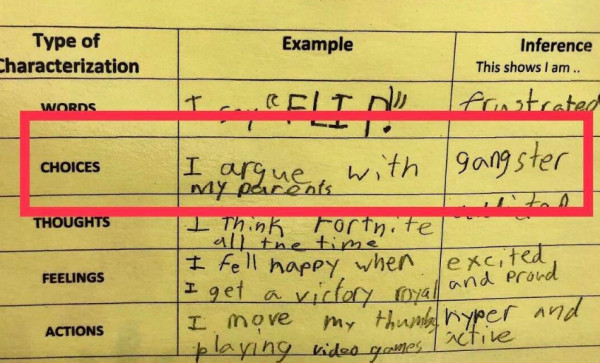 Type of Characterization Example Inference
This shows I am ..
WORDS I say "FLIP!" frustrated
CHOICES I argue with gangster
my parents
THOUGHTS I think Fortnite addicted
all the time
FEELINGS I fell happy when excited
I get a victory royal and proud
ACTIONS I move my thumbs hyper and
playing video games active